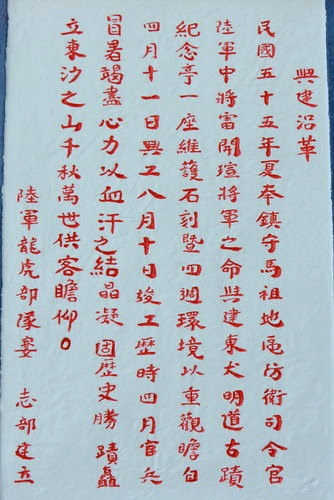 興建沿革
民國五十五年夏奉鎮守馬祖地區防衛司令官
陸軍中將雷開瑄將軍之命興建東犬明道古蹟
紀念亭一座維護石刻暨四週環境以重觀瞻自
四月十一日興工八月十日竣工歷時四月官兵
冒暑竭盡心力以血汗之結晶凝固歷史勝蹟矗
立東沙之山千秋萬世供客瞻仰。
陸軍龍虎部隊 志部建立